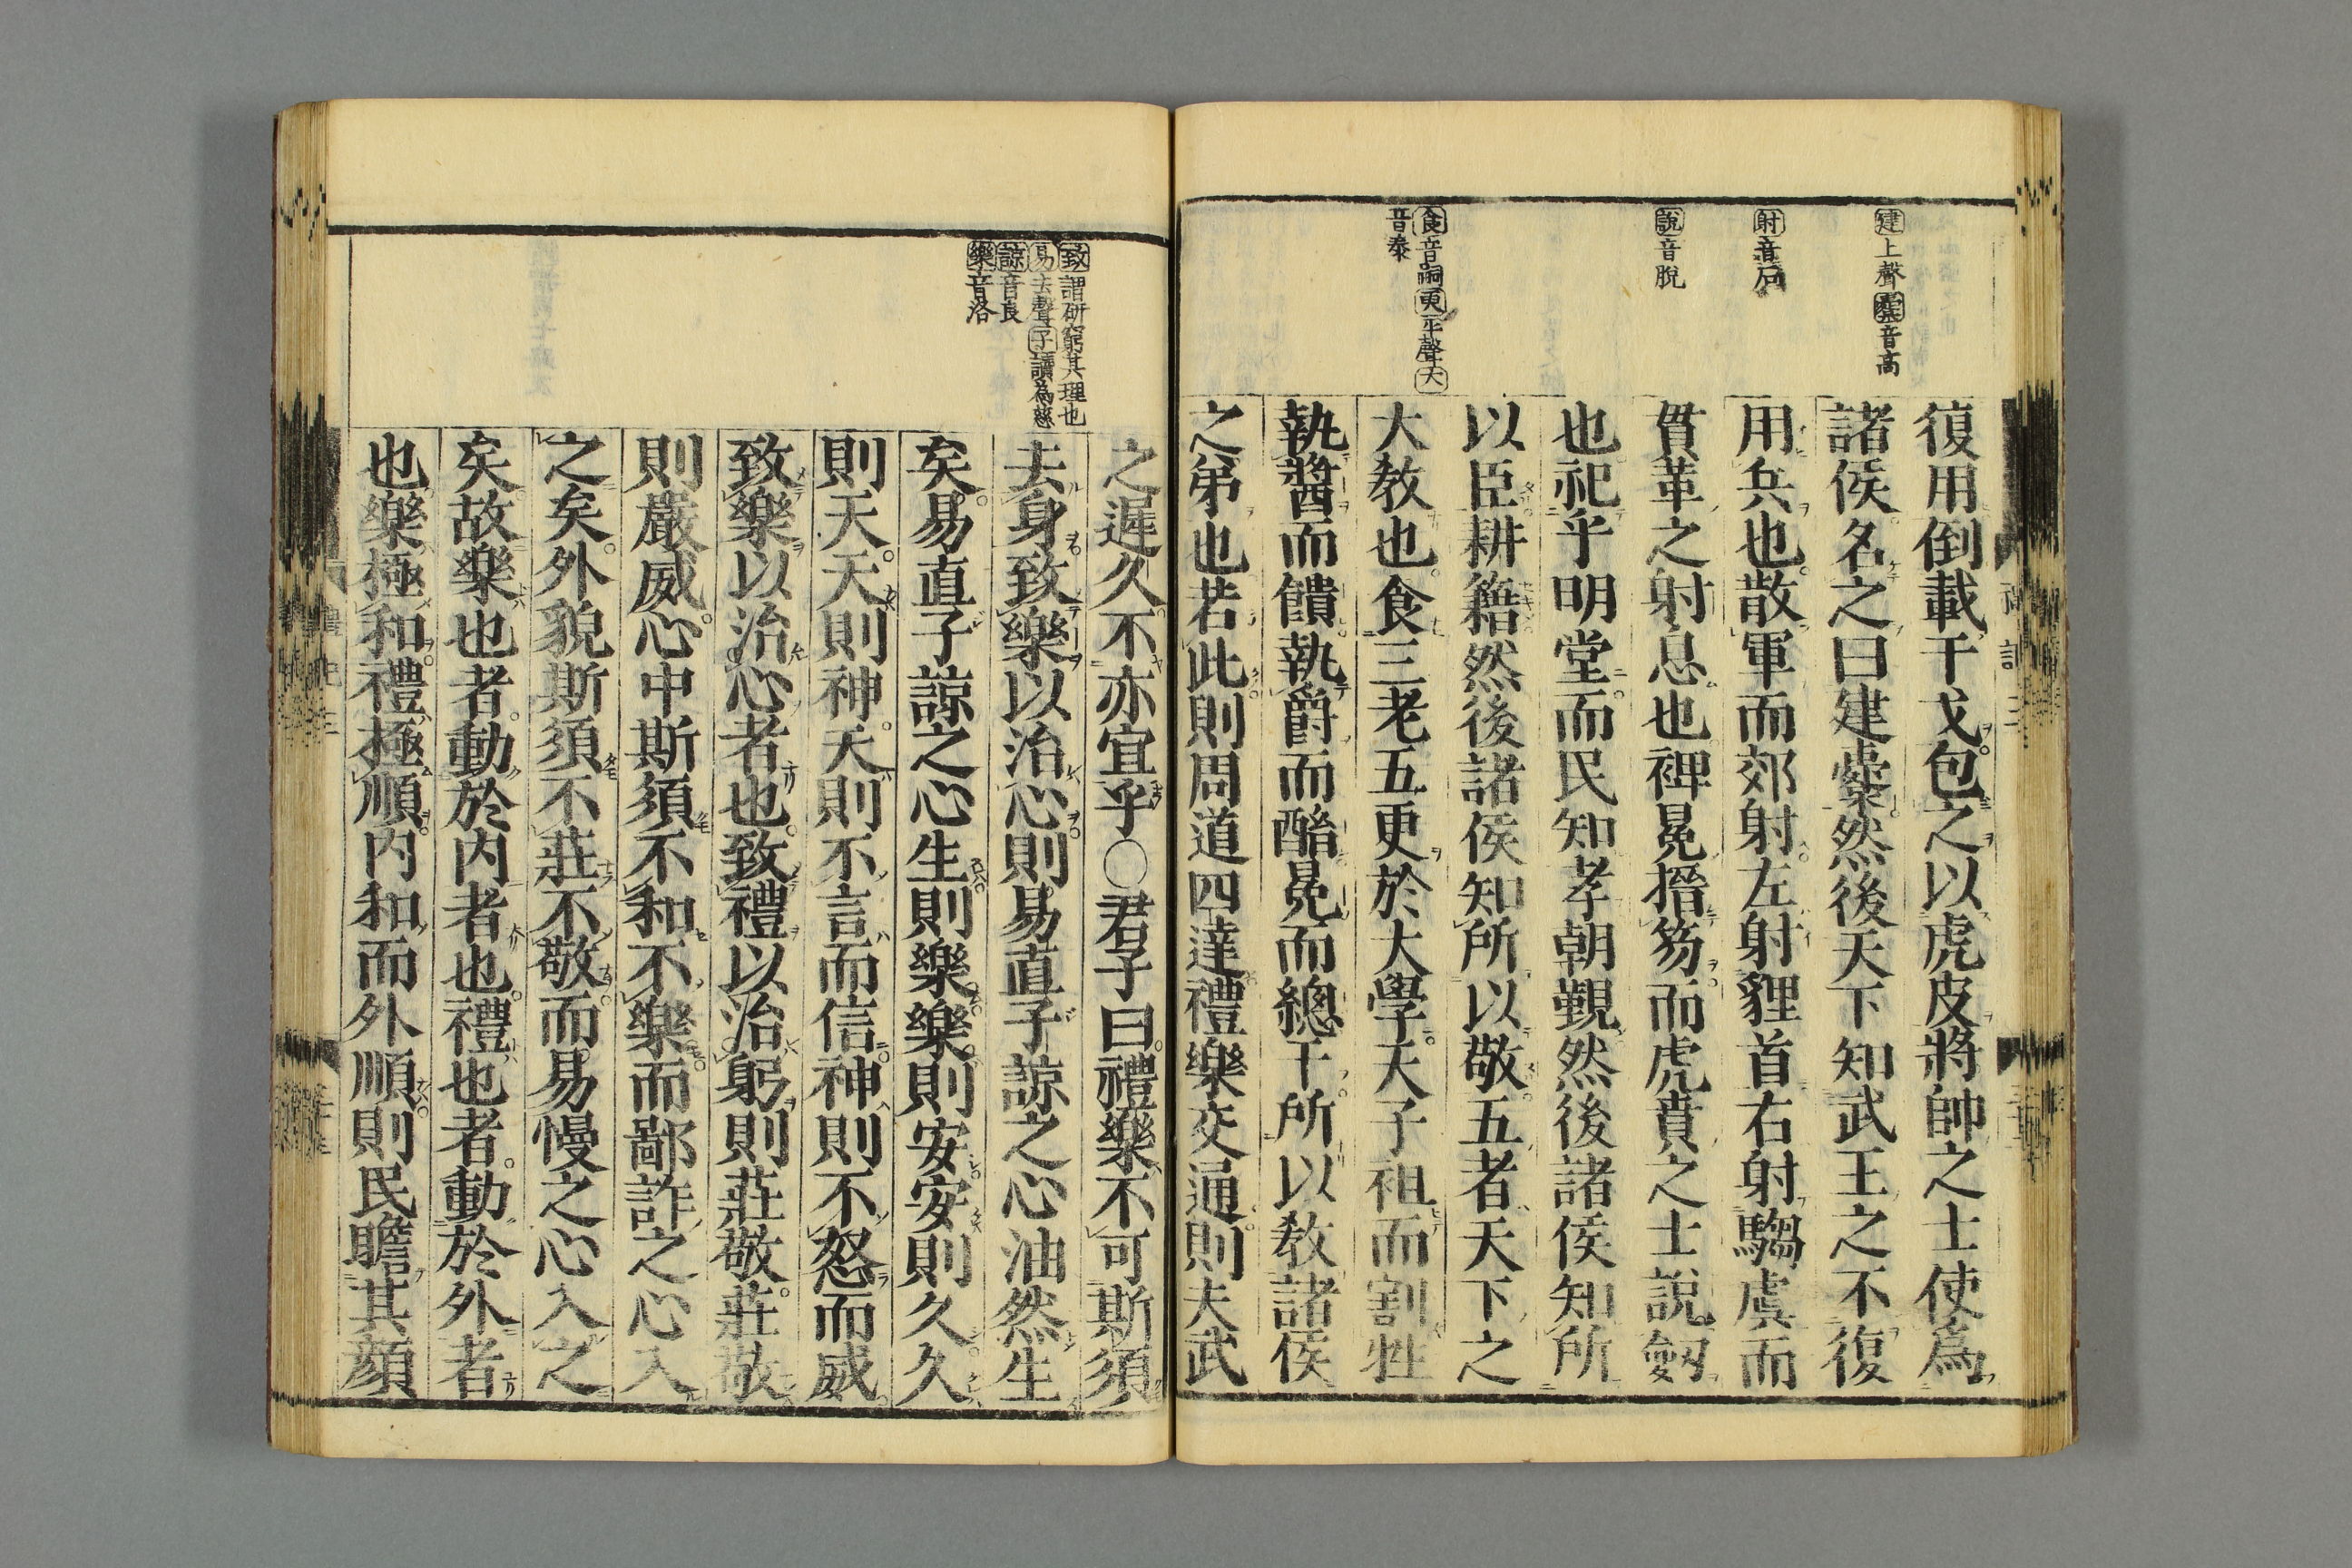 建上聲櫜音高
射音石
說音脫
食音嗣更平聲大
音泰
復用倒載干戈包之以虎皮將帥之士使爲
諸侯名之曰建櫜然後天下知武王之不復
用兵也散軍而郊射左射貍首右射騶虞而
貫革之射息也裨冕搢笏而虎賁之士說劔
也祀乎明堂而民知孝朝覲然後諸侯知所
以臣耕籍然後諸侯知所以敬五者天下之
大教也食三老五更於大學天子袒而割牲
執醬而饋執爵而酳冕而總干所以教諸侯
之弟也若此則周道四達禮樂交通則夫武
致謂研窮其理也
易去聲子讀爲慈
諒音良
樂音洛
之遲久不亦宜乎○君子曰禮樂不可斯須
去身致樂以治心則易直子諒之心油然生
矣易直子諒之心生則樂樂則安安則久久
則天天則神天則不言而信神則不怒而威
致樂以治心者也致禮以治躬則莊敬莊敬
則嚴威心中斯須不和不樂而鄙詐之心入
之矣外貌斯須不莊不敬而易慢之心入之
矣故樂也者動於內者也禮也者動於外者
也樂極和禮極順內和而外順則民瞻其顔